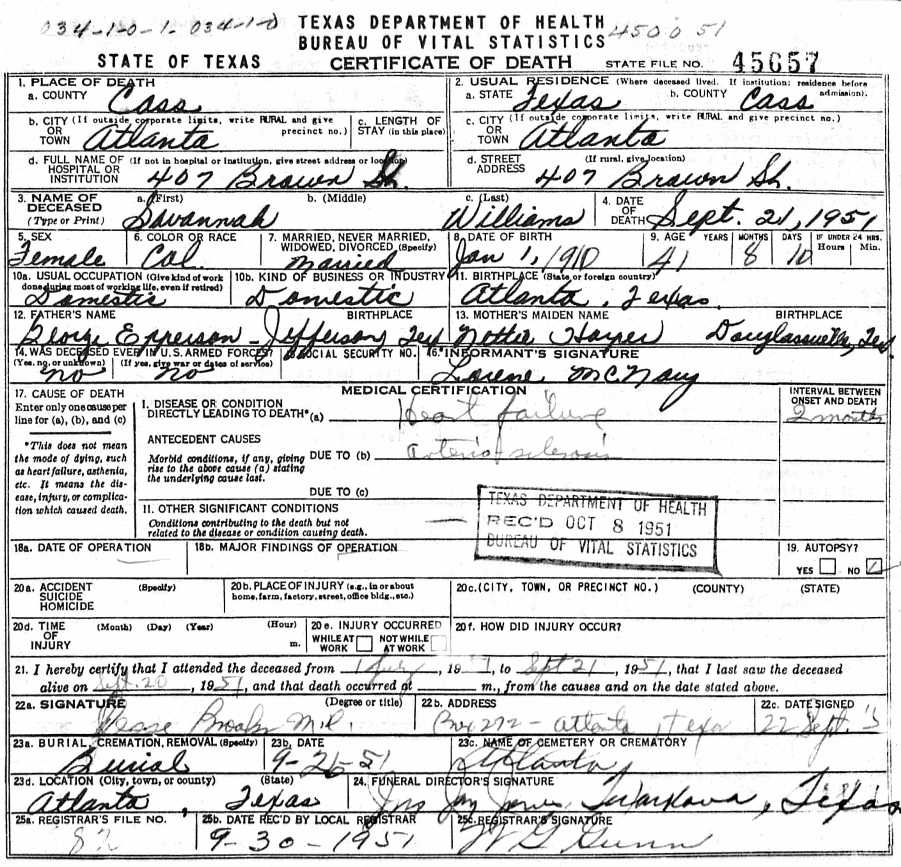 034-1-0-1- 034-1-0
TEXAS DEPARTMENT OF HEALTH
BUREAU OF VITAL STATISTICS
450051
STATE OF TEXAS CERTIFICATE OF DEATH STATE FILE NO. 45657
1. PLACE OF DEATH
a. COUNTY Cass
2. USUAL RESIDENCE (Where deceased lived. If institution: residence before admission).
a. STATE Texas b. COUNTY Cass
b. CITY (If outside corporate limits, write RURAL and give precinct no.) OR TOWN Atlanta
c. LENGTH OF STAY (in this place)
c. CITY (If outside corporate limits, write RURAL and give precinct no.) OR TOWN Atlanta
d. FULL NAME OF (If not in hospital or institution, give street address or location) HOSPITAL OR INSTITUTION 407 Brown St.
d. STREET ADDRESS (If rural, give location) 407 Brown St.
3. NAME OF DECEASED (Type or Print) a. (First) Savannah b. (Middle) c. (Last) Williams
4. DATE OF DEATH Sept. 21, 1951
5. SEX Female
6. COLOR OR RACE Col.
7. MARRIED, NEVER MARRIED, WIDOWED, DIVORCED (Specify) Married
8. DATE OF BIRTH Jan 1, 1910
9. AGE YEARS 41 MONTHS 8 DAYS IF UNDER 24 HRS. Hours Min.
10a. USUAL OCCUPATION (Give kind of work done during most of working life, even if retired) Domestic
10b. KIND OF BUSINESS OR INDUSTRY Domestic
11. BIRTHPLACE (State or foreign country) Atlanta, Texas
12. FATHER'S NAME BIRTHPLACE George Epperson - Jefferson, Tex
13. MOTHER'S MAIDEN NAME BIRTHPLACE Harper Douglassville, Tex.
14. WAS DECEASED EVER IN U.S. ARMED FORCES? (Yes, no, or unknown) no (If yes, give war or dates of service) No
15. SOCIAL SECURITY NO.
16. INFORMANT'S SIGNATURE Lorene McNary
17. CAUSE OF DEATH
Enter only one cause per line for (a), (b), and (c)
*This does not mean the mode of dying, such as heart failure, asthenia, etc. It means the disease, injury, or complication which caused death.
MEDICAL CERTIFICATION
INTERVAL BETWEEN ONSET AND DEATH
I. DISEASE OR CONDITION DIRECTLY LEADING TO DEATH* (a) Heart failure 2 months
ANTECEDENT CAUSES
Morbid conditions, if any, giving rise to the above cause (a) stating the underlying cause last.
DUE TO (b) arteriosclerosis
DUE TO (c)
II. OTHER SIGNIFICANT CONDITIONS
Conditions contributing to the death but not related to the disease or condition causing death.
TEXAS DEPARTMENT OF HEALTH
REC'D OCT 8 1951
BUREAU OF VITAL STATISTICS
18a. DATE OF OPERATION
18b. MAJOR FINDINGS OF OPERATION
19. AUTOPSY?
YES NO
20a. ACCIDENT SUICIDE HOMICIDE (Specify)
20b. PLACE OF INJURY (e.g., in or about home, farm, factory, street, office bldg., etc.)
20c. (CITY, TOWN, OR PRECINCT NO.) (COUNTY) (STATE)
20d. TIME OF INJURY (Month) (Day) (Year) (Hour) m.
20e. INJURY OCCURRED WHILE AT WORK NOT WHILE AT WORK
20f. HOW DID INJURY OCCUR?
21. I hereby certify that I attended the deceased from 1 July, 19 , to Sept 21, 1951, that I last saw the deceased
alive on Sept. 20, 1951, and that death occurred at m., from the causes and on the date stated above.
22a. SIGNATURE (Degree or title) Jesse Brooks M.D.
22b. ADDRESS Box 272 - Atlanta Texas
22c. DATE SIGNED 22 Sept.
23a. BURIAL, CREMATION, REMOVAL (Specify) Burial
23b. DATE 9-26-51
23c. NAME OF CEMETERY OR CREMATORY Atlanta
23d. LOCATION (City, town, or county) (State) Atlanta, Texas
24. FUNERAL DIRECTOR'S SIGNATURE Jones, Texarkana, Texas
25a. REGISTRAR'S FILE NO.
25b. DATE REC'D BY LOCAL REGISTRAR 9-30-1951
25c. REGISTRAR'S SIGNATURE W G Gunn